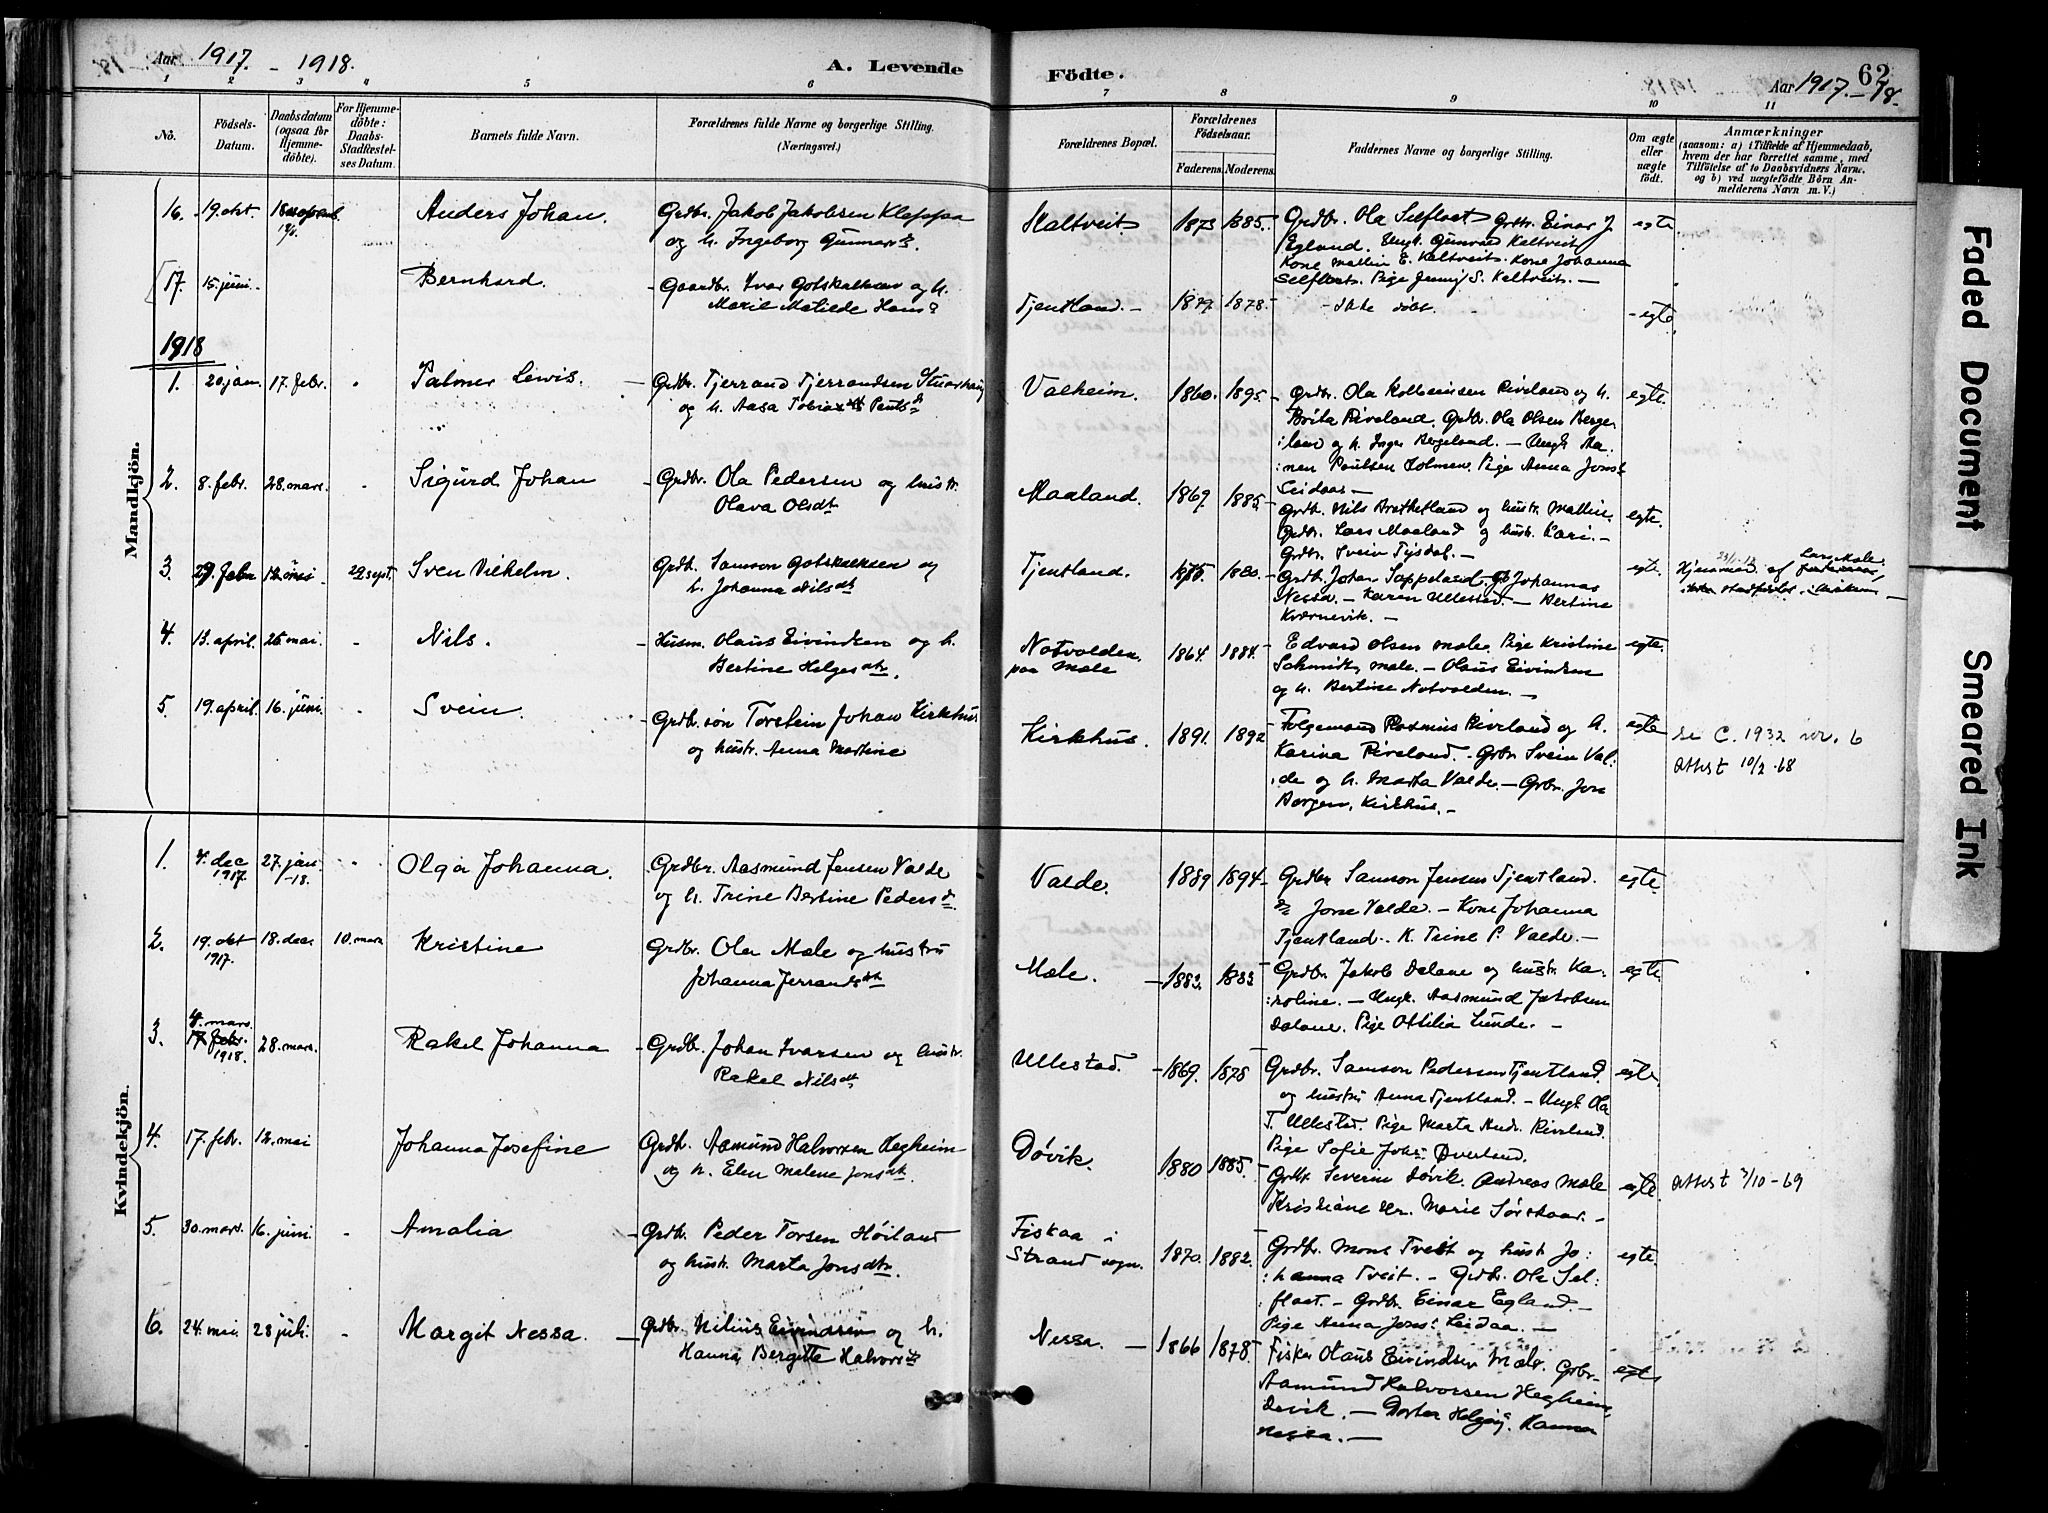 Aar 1917. - 1918.
A. Levende Födte.
62
Aar 1917. - 18.
1 2 3 4 5 6 7 8 9 10 11
No.
Födsels-Datum.
Daabsdatum (ogsaa for Hjemme-döbte).
For Hjemme-döbte: Daabs-Stadfæstel-ses Datum.
Barnets fulde Navn.
Forældrenes fulde Navne og borgerlige Stilling. (Næringsvei.)
Forældrenes Bopæl.
Forældrenes Födselsaar.
Faderens. Moderens.
Faddernes Navne og borgerlige Stilling.
Om ægte eller uægte født.
Anmærkninger
(saasom: a) i Tilfælde af Hjemmedaab,
hvem der har forrettet samme, med
Tilføielse af to Daabsvidners Navne,
og b) ved uægtefödte Börn An-
melderens Navn m. V.)
Mandkjön.
16. 19. okt. Anders Johan. Grdbr. Jakob Jakobsen Kleppa
og h. Ingeborg Gunnarsd.
Kaltveit 1873 1885. Grdbr. Ola Selfloet Grbr. Einar J.
Egland. Ungk. Gunvald Kaltveit
Kone Mallin E. Kaltveit. Kone Johanna
Selfloet. Pige Jenny S. Kaltveit. -
egte
17. 15. juni. Bernhard. - Gaardbr. Ivar Gotskalksen og h.
Marie Matilde Hansd.
Tjentland. - 1879. 1878. - Ikke döbt. - egte
1918
1. 20. jan. 17. febr. Palmer Lewis. - Grdbr. Tjerrand Tjerrandsen Stuarhaug
og h. Aasa Tobine Paulsd.
Valheim. 1860. 1895. Grdbr. Ola Kolbeinsen Riveland og h.
Brita Riveland. Grdbr. Ola Olsen Berge-
land og h. Inger Bergeland. - Ungk. Ra-
nen Poulsen Holmen. Pige Anna Jonsd.
Leidaa -
egte.
2. 8. febr. 28. mars. Sigurd Johan - Grdbr. Ola Pedersen og hustr.
Olava Olsdt.
Maaland. 1869. 1885. Grdb. Nils Brathetland og hustr. Malline.
Grdbr. Lars Maaland og hustr. Kari. -
Grdbr. Svein Tysdal. -
egte.
3. 27. Febr 12. mai 29. sept. Sven Vilhelm. Grdb. Samson Gotskalksen og
h. Johanna Nilsdt.
Tjentland. 1875. 1880. Grdb. Johan Sappeland. Johannas
Nessa. - Karen Ullestad. - Bertine
Kværnevik. -
egte.
4. 13. april. 26. mai. Nils. Husm. Olaus Eivindsen og h.
Bertine Helgesdt.
Notvolden paa Mæle 1864. 1884. Edvard Olsen Mæle. Pige Kristine
Schmidt, Mæle. - Olaus Eivindsen
og h. Bertine Notvolden. -
egte.
5. 19. april. 16. juni. Svein. - Grdbr. søn Torstein Johan Kirkhus
og hustr. Anna Martine
Kirkhus. 1891. 1892 Følgemand Rasmus Riveland og h.
Karina Riveland. Grbr. Svein Val-
de og h. Marta Valde. - Grbr. Jon
Borgen, Kirkhus. -
egte
se C. 1932 nr. 6
Attest 10/2 -68
Kvindekjön.
1. 4. dec 1917. 27. jan -18. Olga Johanna. Grdbr. Aasmund Jensen Valde
og h. Trine Bertine Pedersd.
Valde. 1889 1894 - Grdbr. Samson Jensen Tjentland.
Jone Valde. - Kone Johanna
Tjentland. K. Trine P. Valde. -
egte
2. 19. okt 1917. 18. dec. 10. mars Kristine Grdbr. Ola Mæle og hustru
Johanna Jerrandsdt.
Mæle. - 1883. 1883 Grdbr. Jakob Dalane og hustr. Ka-
roline. - Ungk. Aasmund Jakobsen
Dalane. Pige Ottilia Lunde. -
egte
3. 4. mars. 17 febr. 1918. 28. mars. Rakel Johanna - Grdbr. Johan Ivarsen og hustr.
Rakel Nilsdt.
Ullestad. - 1869. 1878 Grdbr. Samson Pedersen Tjentland.
og hustru Anna Tjentland. - Ungk. Ola
T. Ullestad. Pige Marta Andr. Riveland.
Pige Sofie Johs. Överland.
egte.
4. 17. febr. 12. mai Johanna Josefine Grdb. Aamund Halvorsen Hegheim
og h. Elen Malene Jonsdt.
Døvik. 1880 1885. Grdb. Severin Døvik. Andreas Mæle
Kristiane Marie Sørskaar. -
egte. Attest 3/10 -69
5. 30. mars. 16. juni. Amalia - Grdb. Peder Torsen Høiland
og hustr. Marta Jonsdtr.
Fiskaa i Strand sogn. 1870. 1882. Grdbr. Mons Tveit og hust. Jo-
hanna Tveit. - Grdbr. Ola Sel-
floet. - Grdbr. Einar Egland. -
Pige Anna Jonsd. Leidaa. -
egte.
6. 24. mai 28 juli. Margit Nessa. - Grdbr. Nilius Eivindsen og h.
Hanna Bergitte Halvorsdt.
Nessa. - 1866 1878. Fisker Olaus Eivindsen Mæle. Grbr.
Aamund Halvorsen Hegheim,
Døvik. - Dorte Helgesd. Hanna
Nessa. -
egte
Faded Document
Smeared Ink